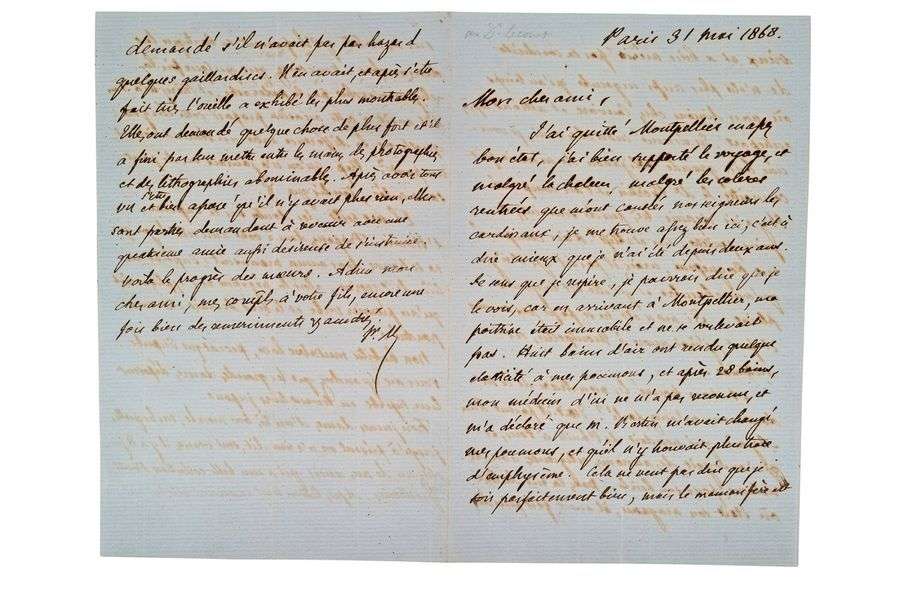 Paris 31 mai 1868.
Mon cher ami,
J'ai quitté Montpellier en assez
bon état, j'ai bien supporté le voyage, et
malgré la chaleur, malgré les colères
rentrées que m'ont causées nos seigneurs les
cardinaux, je me trouve assez bien ici, c'est à
dire mieux que je n'ai été depuis deux ans.
Je sens que je respire, je pourrais dire que je
le vois, car en arrivant à Montpellier, ma
poitrine était immobile et ne se soulevait
pas. Huit bains d'air ont rendu quelque
élasticité à mes poumons, et après 28 bains,
mon médecin d'ici ne m'a pas reconnu, et
m'a déclaré que M. Bertin m'avait changé
mes poumons, et qu'il n'y trouvait plus trace
d'emphysème. Cela ne veut pas dire que je
sois parfaitement bien, mais le mammifère est
demandé s'il n'avait pas par hazard
quelques gaillardises. Il en avait, et après s'être
fait tirer l'oreille a exhibé les plus montrables.
Elles ont demandé quelque chose de plus fort et il
a fini par leur mettre entre les mains des photographies
et des lithographies abominables. Après avoir tout
vu et s'être bien assuré qu'il n'y avait plus rien, elles
sont parties demandant à revenir avec une
quatrième amie aussi désireuse de s'instruire.
Voilà le progrès des mœurs. Adieu mon
cher ami, mes compts à votre fils, encore une
fois bien des remerciments
Pr. M